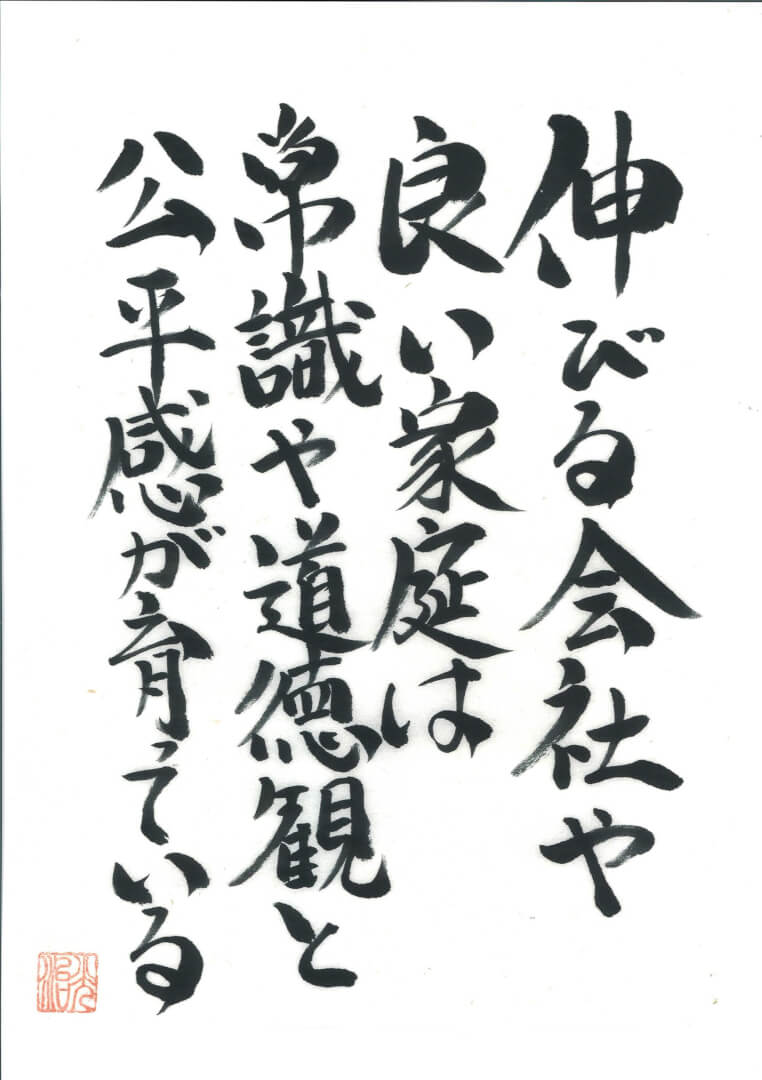 伸びる会社や
良い家庭は
常識や道徳観と
公平感が育ている